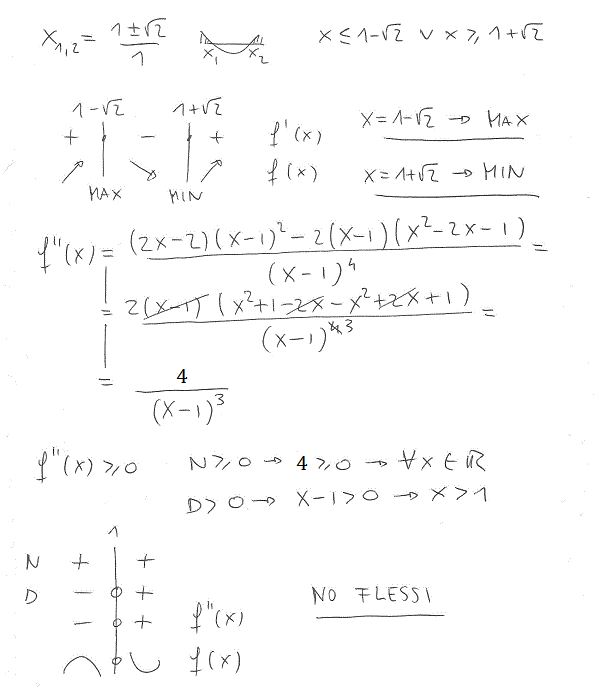 x₁,₂ = (1±√2)/1   x₁ x₂   x ≤ 1-√2 ∨ x ≥ 1+√2
1-√2   1+√2
+ - +   f'(x)   x = 1-√2 → MAX
f(x)   x = 1+√2 → MIN
MAX   MIN
f''(x) = ((2x-2)(x-1)² - 2(x-1)(x²-2x-1))/(x-1)⁴ =
= 2(x-1)(x²+1-2x-x²+2x+1)/(x-1)⁴ ³ =
= 4/(x-1)³
f''(x) ≥ 0   N ≥ 0 → 4 ≥ 0 → ∀x ∈ ℝ
D > 0 → x-1 > 0 → x > 1
1
N + +
D - +   NO FLESSI
- + f''(x)
f(x)